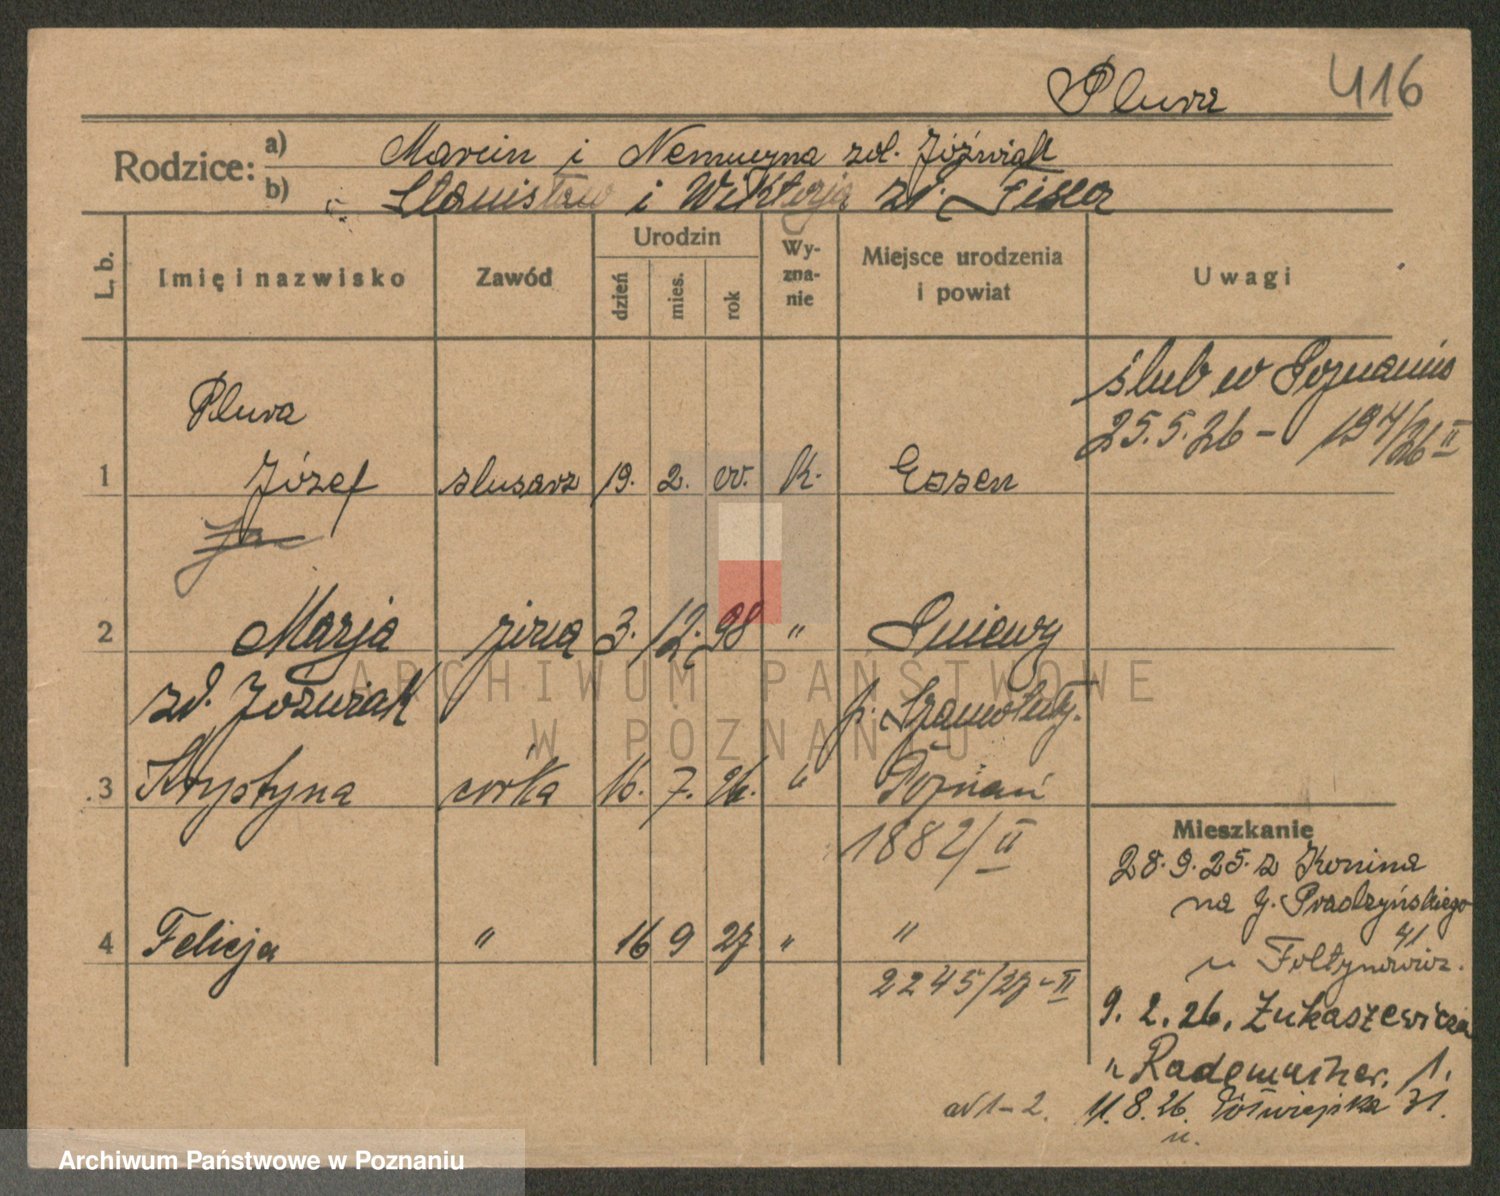 Plura 416
Rodzice: a) Marcin i Nemucyna zd. Jóźwiak
b) Stanisław i Wiktorja zd. Fisla
L. b. Imię i nazwisko Zawód Urodzin dzień mies. rok Wyzna-nie Miejsce urodzenia i powiat Uwagi
ślub w Poznaniu
25.5.26 - 194/26 II
Plura
1 Józef slusarz 19. 2. 00. k. Essen
2 Marja żona 3. 12. 98 " Pniewy
zd. Jozwiak p. Szamotuły.
3 Krystyna corka 16. 7. 26. " Poznań
1882/II
4 Felicja " 16 9 27 " "
2245/27-II
Mieszkanie
28.9.25. z Konina
na g. Pradzyńskiego
41
u Foltynowicz.
9. 2. 26. Łukaszewicza
u Rademacher. 1.
od 1-2. 11. 8. 26. Półwiejska 31.
u.
ARCHIWUM PAŃSTWOWE
W POZNANIU
Archiwum Państwowe w Poznaniu